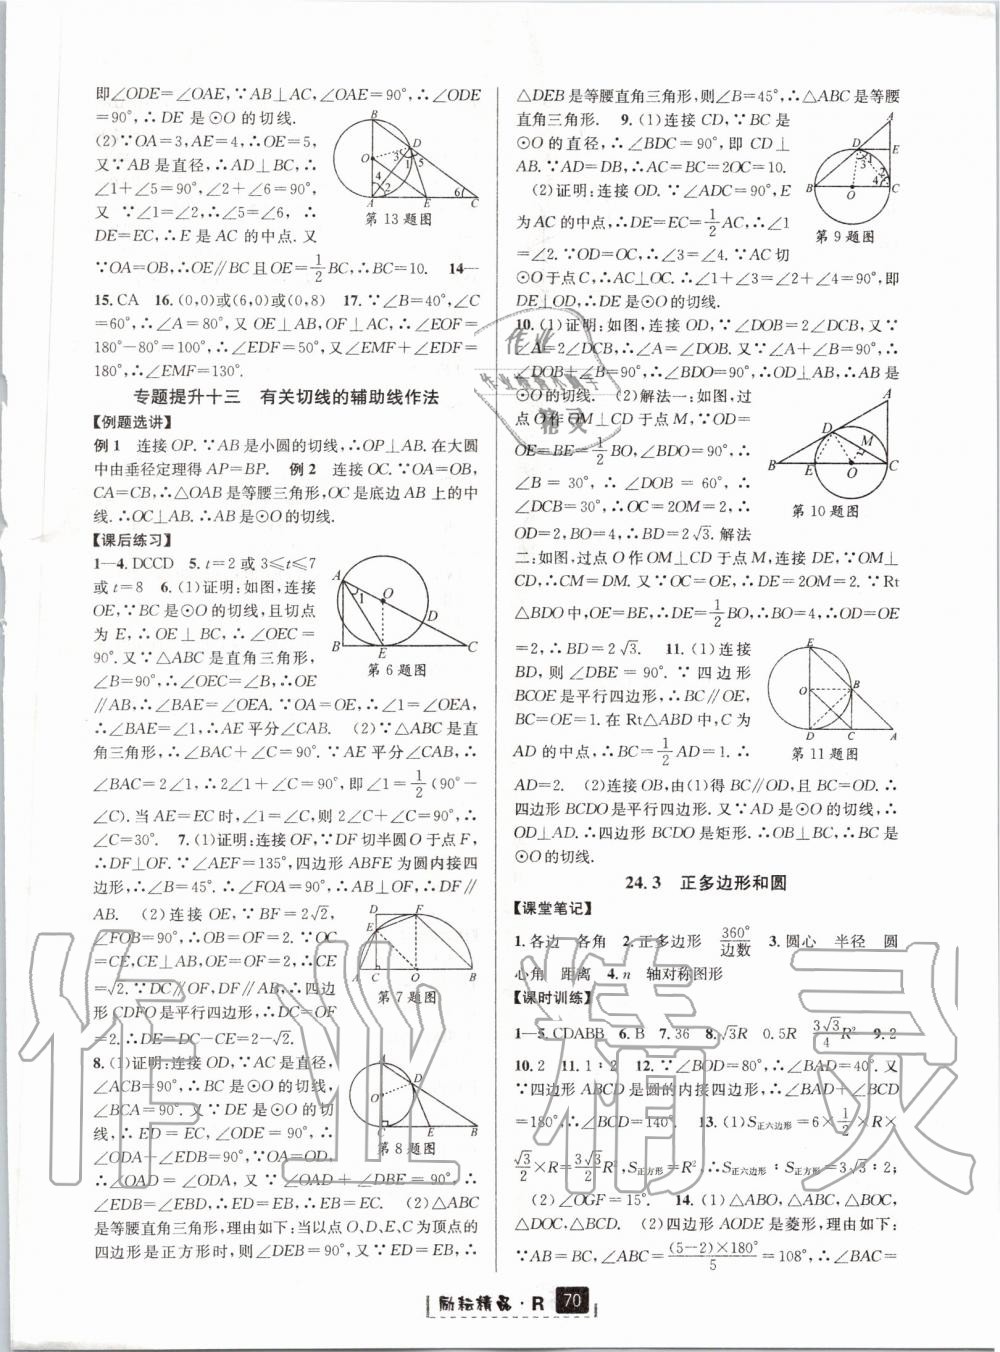 即∠ODE=∠OAE,∵AB⊥AC,∠OAE=90°,∴∠ODE
=90°,∴DE是⊙O的切线.
(2)∵OA=3,AE=4,∴OE=5,
又∵AB是直径,∴AD⊥BC,∴
∠1+∠5=90°,∠2+∠6=90°,
又∵∠1=∠2,∴∠5=∠6,∴
DE=EC,∴E是AC的中点.又
第13题图
∵OA=OB,∴OE∥BC且OE=1/2BC,∴BC=10. 14—
15.CA 16.(0,0)或(6,0)或(0,8) 17.∵∠B=40°,∠C
=60°,∴∠A=80°,又OE⊥AB,OF⊥AC,∴∠EOF=
180°-80°=100°,∴∠EDF=50°,又∠EMF+∠EDF=
180°,∴∠EMF=130°.
专题提升十三 有关切线的辅助线作法
【例题选讲】
例1 连接OP.∵AB是小圆的切线,∴OP⊥AB.在大圆
中由垂径定理得AP=BP. 例2 连接OC.∵OA=OB,
CA=CB,∴△OAB是等腰三角形,OC是底边AB上的中
线.∴OC⊥AB.∴AB是⊙O的切线.
【课后练习】
1—4.DCCD 5.t=2或3≤t≤7
或t=8 6.(1)证明:如图,连接
OE,∵BC是⊙O的切线,且切点
为E,∴OE⊥BC,∴∠OEC=
90°.又∵△ABC是直角三角形,
∠B=90°,∴∠OEC=∠B,∴OE
∥AB,∴∠BAE=∠OEA.∵OA=OE,∴∠1=∠OEA,
第6题图
∴∠BAE=∠1,∴AE平分∠CAB. (2)∵△ABC是直
角三角形,∴∠BAC+∠C=90°.∵AE平分∠CAB,∴
∠BAC=2∠1,∴2∠1+∠C=90°,即∠1=1/2(90°-
∠C).当AE=EC时,∠1=∠C,则2∠C+∠C=90°,∴
∠C=30°. 7.(1)证明:连接OF,∵DF切半圆O于点F,
∴DF⊥OF.∵∠AEF=135°,四边形ABFE为圆内接四
边形,∴∠B=45°.∴∠FOA=90°,∴AB⊥OF,∴DF∥
AB. (2)连接OE,∵BF=2√2,
∠FOB=90°,∴OB=OF=2.∵OC
=CE,CE⊥AB,OE=OF=2,∴CE
=√2.∵DC∥OF,DF∥AB,∴四边
形CDFO是平行四边形,∴DC=OF
=2.∴DE=DC-CE=2-√2.
第7题图
8.(1)证明:连接OD,∵AC是直径,
∠ACB=90°,∴BC是⊙O的切线,
∠BCA=90°.又∵DE是⊙O的切
线,∴ED=EC,∠ODE=90°,∴
∠ODA+∠EDB=90°,∵OA=OD,
∴∠OAD=∠ODA,又∵∠OAD+∠DBE=90°,∴
第8题图
∠EDB=∠EBD,∴ED=EB,∴EB=EC. (2)△ABC
是等腰直角三角形,理由如下:当以点O、D、E、C为顶点的
四边形是正方形时,则∠DEB=90°,又∵ED=EB,∴
△DEB是等腰直角三角形,则∠B=45°,∴△ABC是等腰
直角三角形. 9.(1)连接CD,∵BC是
⊙O的直径,∴∠BDC=90°,即CD⊥
AB.∵AD=DB,∴AC=BC=2OC=10.
(2)证明:连接OD.∵∠ADC=90°,E
为AC的中点,∴DE=EC=1/2AC,∴∠1
=∠2.∵OD=OC,∴∠3=∠4.∵AC切
第9题图
⊙O于点C,∴AC⊥OC.∴∠1+∠3=∠2+∠4=90°,即
DE⊥OD,∴DE是⊙O的切线.
10.(1)证明:如图,连接OD,∵∠DOB=2∠DCB,又∵
∠A=2∠DCB,∴∠A=∠DOB.又∵∠A+∠B=90°,∴
∠DOB+∠B=90°.∴∠BDO=90°.∴
OD⊥AB.∴AB是⊙O的切线.
(2)解法一:如图,过
点O作OM⊥CD于点M,∵OD=
OE=BE=1/2BO,∠BDO=90°,∴
∠B=30°,∴∠DOB=60°,∴
∠DCB=30°,∴OC=2OM=2,∴
OD=2,BO=4,∴BD=2√3.解法
第10题图
二:如图,过点O作OM⊥CD于点M,连接DE,∵OM⊥
CD,∴CM=DM.又∵OC=OE,∴DE=2OM=2.∵Rt
△BDO中,OE=BE,∴DE=1/2BO,∴BO=4,∴OD=OE
=2,∴BD=2√3. 11.(1)连接
BD,则∠DBE=90°.∵四边形
BCOE是平行四边形,∴BC∥OE,
BC=OE=1.在Rt△ABD中,C为
AD的中点,∴BC=1/2AD=1.∴
第11题图
AD=2. (2)连接OB,由(1)得BC∥OD,且BC=OD.∴
四边形BCDO是平行四边形.又∵AD是⊙O的切线,∴
OD⊥AD.∴四边形BCDO是矩形.∴OB⊥BC,∴BC是
⊙O的切线.
24.3 正多边形和圆
【课堂笔记】
1.各边 各角 2.正多边形 360°/边数 3.圆心 半径 圆
心角 距离 4.n 轴对称图形
【课时训练】
1—5.CDABB 6.B 7.36 8.√3R 0.5R 3√3/4R² 9.2
10.2 11.1∶2 12.∵∠BOD=80°,∴∠BAD=40°.又
∵四边形ABCD是圆的内接四边形,∴∠BAD+∠BCD
=180°,∴∠BCD=140°. 13.(1)S正六边形=6×1/2×R×
√3/2×R=3√3/2R²,S正方形=R²,∴S正六边形∶S正方形=3√3∶2;
(2)∠OGF=15°. 14.(1)△ABO,△ABC,△BOC,
△DOC,△BCD. (2)四边形AODE是菱形,理由如下:
∵AB=BC,∠ABC=(5-2)×180°/5=108°,∴∠BAC=
励耘精品·R 70